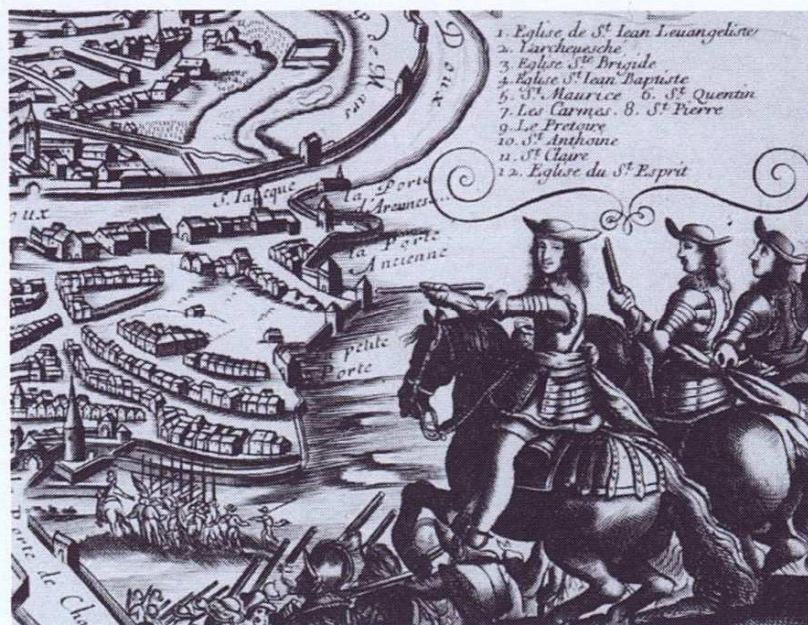 1. Eglise de S.t Iean Leuangeliste
2. Larcheuesche
3. Eglise S.te Brigide
4. Eglise S.t Iean Baptiste
5. S.t Maurice 6. S.t Quentin
7. Les Carmes. 8. S.t Pierre
9. Le Pretoire
10. S.t Anthoine
11. S.te Claire
12. Eglise du S.t Esprit
de Mars
Doux
S. Iacque
la Porte
d'Arennes
oux
la Porte
Ancienne
petite
Porte
Porte de Cha